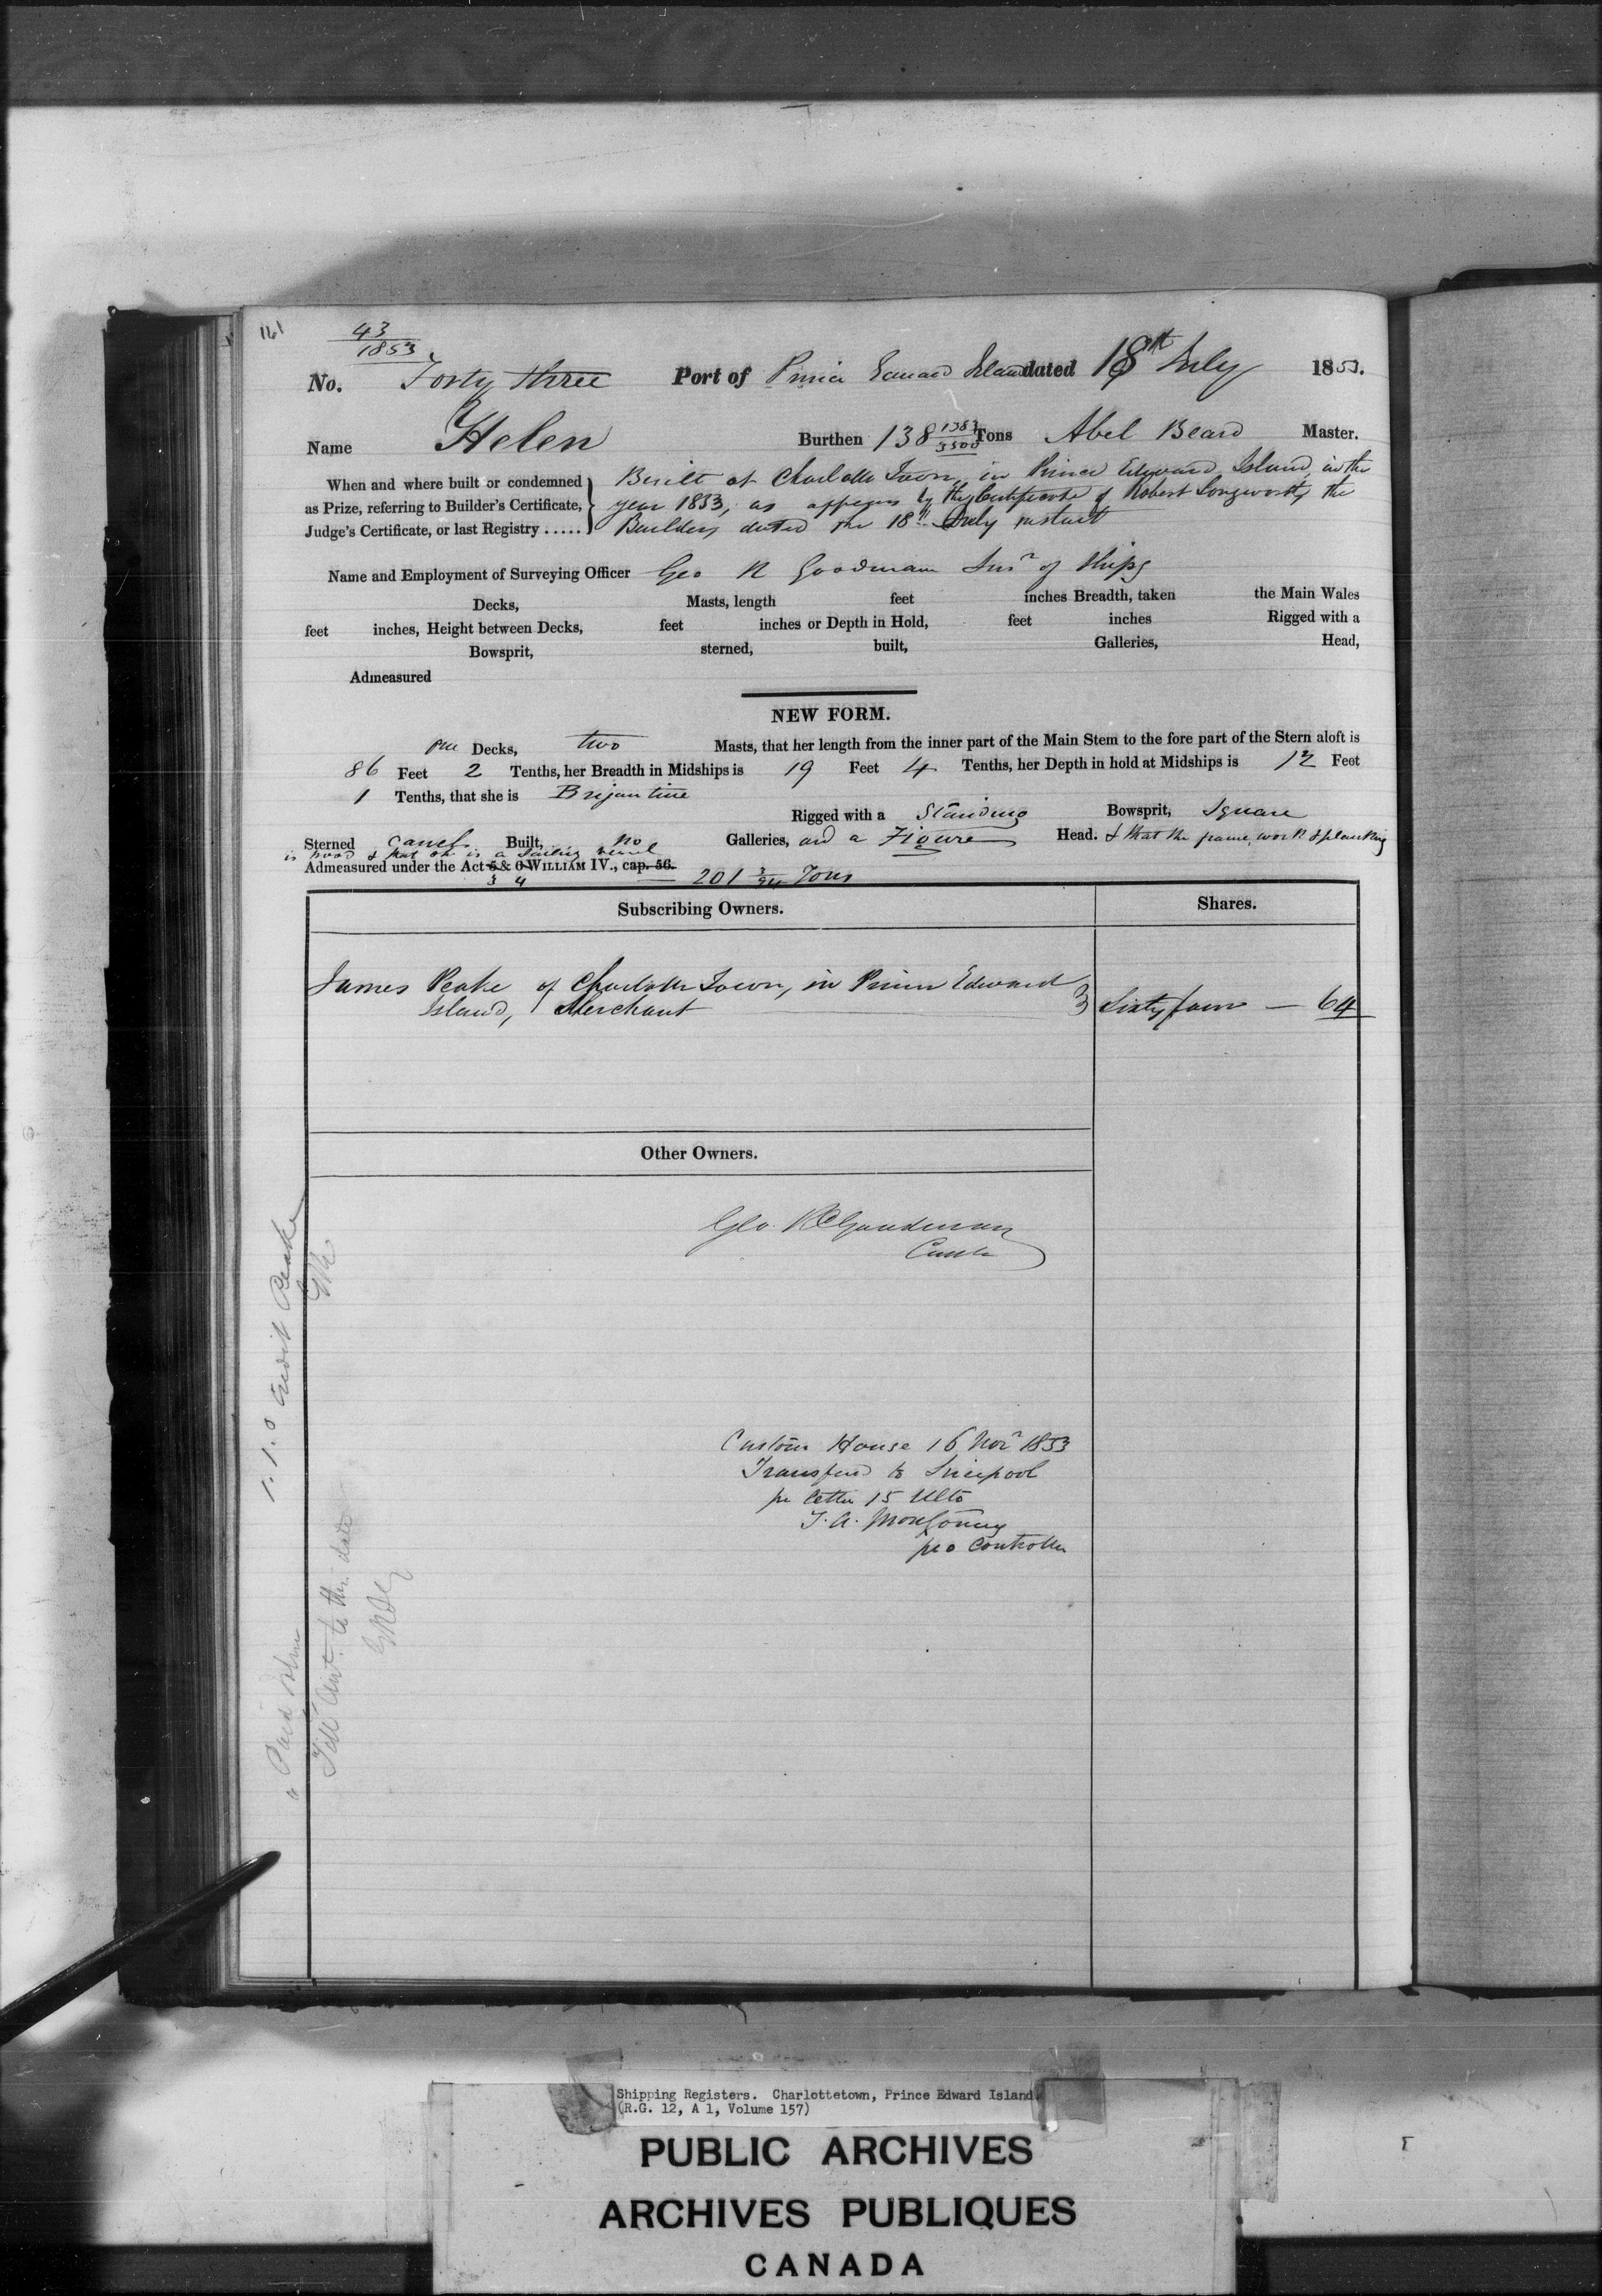 161
43
1853
No. Forty three Port of Prince Edward Island dated 18th July 1853.
Name Helen Burthen 138 1383/3500 Tons Abel Beard Master.
When and where built or condemned
as Prize, referring to Builder's Certificate,
Judge's Certificate, or last Registry .....
Built at Charlotte Town, in Prince Edward Island, in the
year 1853, as appears by the Certificate of Robert Longworth, the
Builder, dated the 18th July instant
Name and Employment of Surveying Officer Geo R Goodman Surr of Ships
Decks, Masts, length feet inches Breadth, taken the Main Wales
feet inches, Height between Decks, feet inches or Depth in Hold, feet inches Rigged with a
Bowsprit, sterned, built, Galleries, Head,
Admeasured
NEW FORM.
one Decks, two Masts, that her length from the inner part of the Main Stem to the fore part of the Stern aloft is
86 Feet 2 Tenths, her Breadth in Midships is 19 Feet 4 Tenths, her Depth in hold at Midships is 12 Feet
1 Tenths, that she is Brigantine
Rigged with a Standing Bowsprit, Square
Sterned Carvel Built, no Galleries, and a Figure Head. & that the frame work & planking
is wood & that she is a Sailing vessel
Admeasured under the Act 5 & 6 WILLIAM IV., cap. 56.
3 4 201 3/94 Tons
Subscribing Owners. Shares.
James Peake of Charlotte Town, in Prince Edward
Island, Merchant Sixty four — 64
Other Owners.
Geo. R Goodman
Contr
Custom House 16 Novr 1853
Transferd to Liverpool
pr letter 15 Ulto
T. A. Montgomery
pro Controller
1. 1. 0 Credit Peake
GRG
Paid
to this date
GRG
Shipping Registers. Charlottetown, Prince Edward Island.
(R.G. 12, A 1, Volume 157)
PUBLIC ARCHIVES
ARCHIVES PUBLIQUES
CANADA